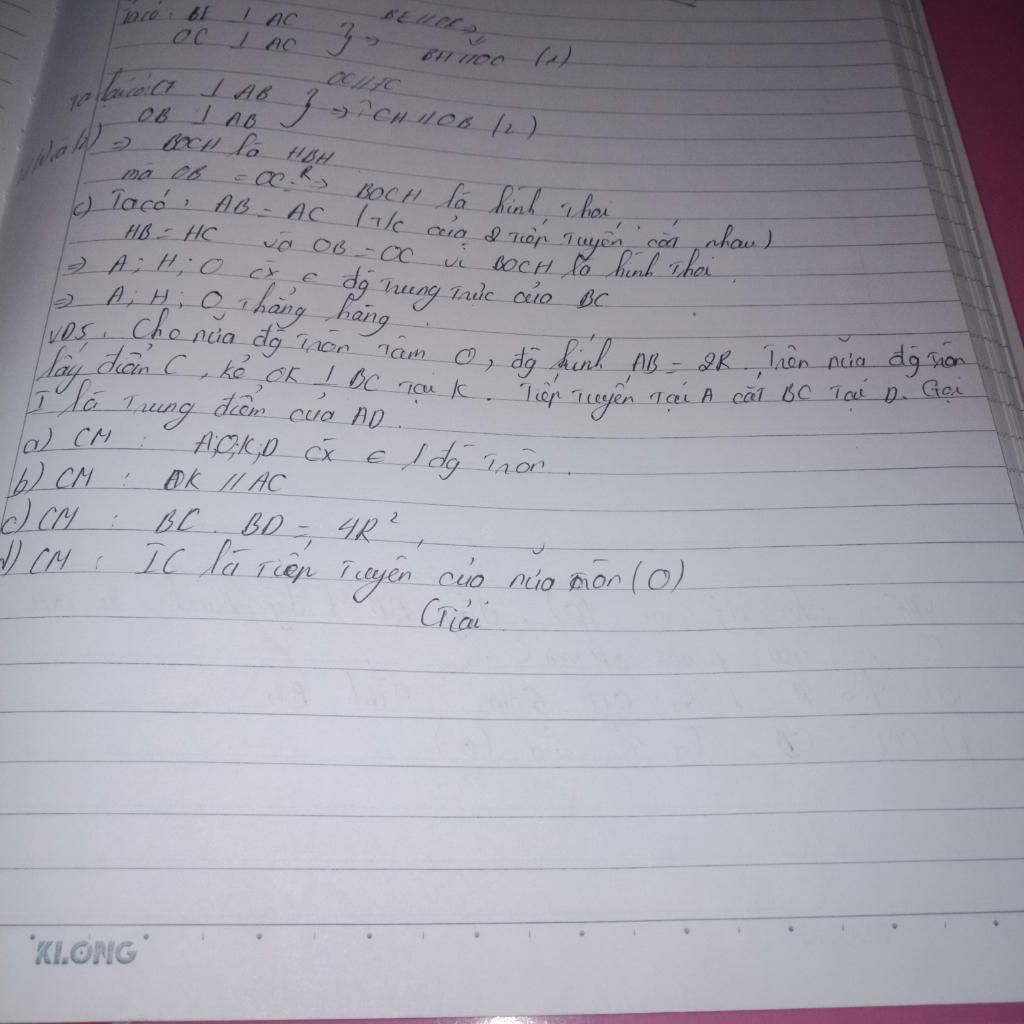 Ta có: BE ⊥ AC
OC ⊥ AC } => BH // OC (1)
CF ⊥ AB OC // FC
OB ⊥ AB } => CH // OB (2)
=> BOCH là HBH
mà OB = OC = R => BOCH là hình thoi
c) Ta có: AB = AC (T/c của 2 tiếp tuyến cắt nhau)
HB = HC và OB = OC vì BOCH là hình thoi
=> A; H; O cx ∈ đg trung trực của BC
=> A; H; O thẳng hàng.
VD5. Cho nửa đg tròn tâm O, đg kính AB = 2R. Trên nửa đg tròn
lấy điểm C, kẻ OK ⊥ BC tại K. Tiếp tuyến tại A cắt BC tại D. Gọi
I là trung điểm của AD.
a) CM: A;O;K;D cx ∈ 1 đg tròn.
b) CM: OK // AC
c) CM: BC. BD = 4R²
d) CM: IC là tiếp tuyến của nửa tròn (O)
Giải
KLONG